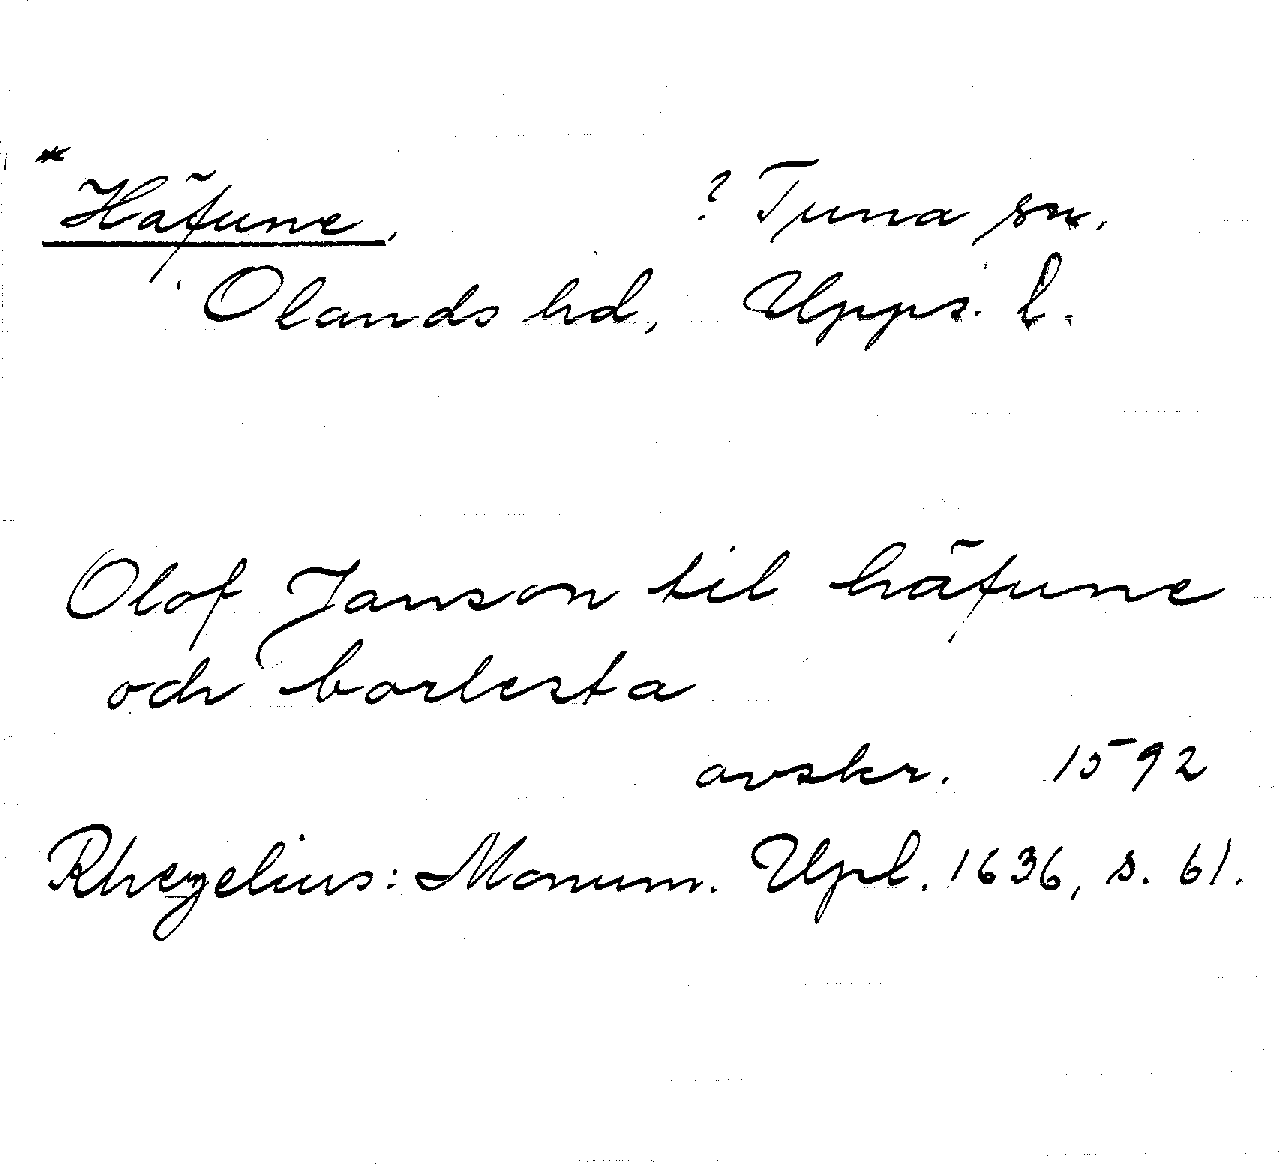 * Häfune,          ? Tuna sn.
Olands hd, Upps. l.
Olof Janson til häfune
och borlesta
avskr. 1592
Rhezelius: Monum. Upl. 1636, s. 61.